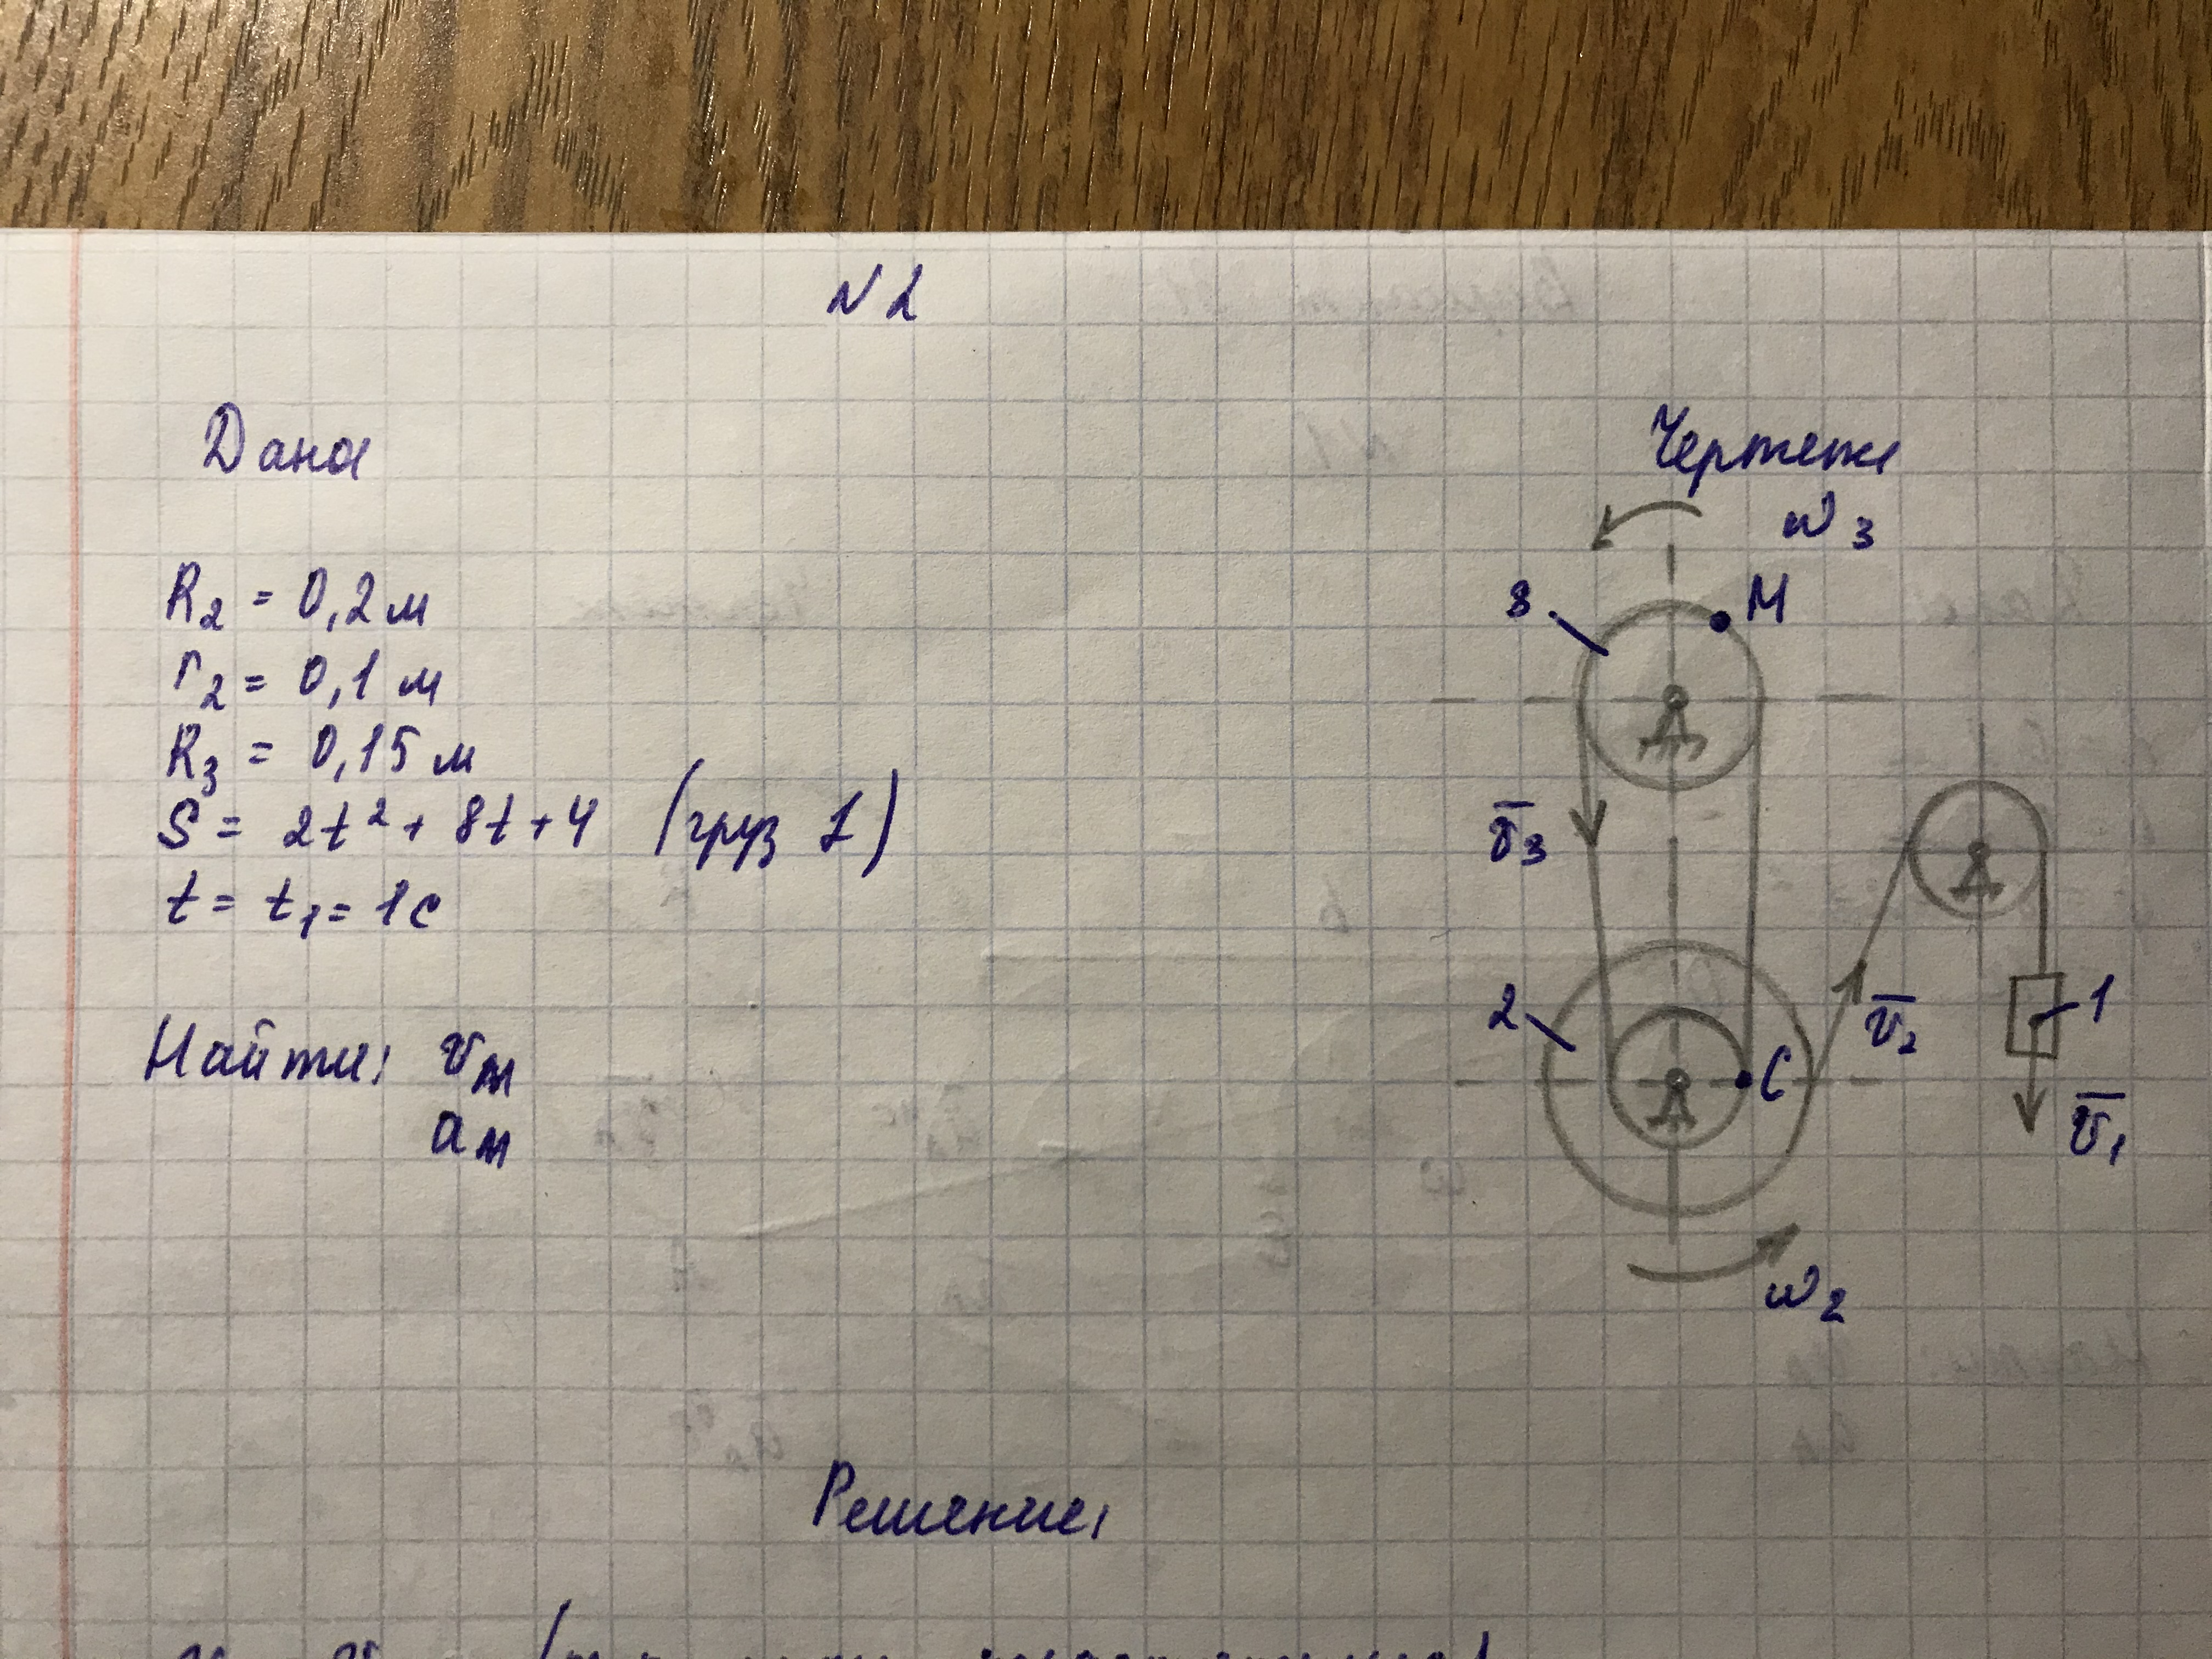 N 2
Дано
Чертеж
R₂ = 0,2 м
r₂ = 0,1 м
R₃ = 0,15 м
S = 2t² + 8t + 4 (груз 1)
t = t₁ = 1с
Найти: v_M
a_M
ω₃
3
M
v̅₃
2
C
v̅₂
1
v̅₁
ω₂
Решение: